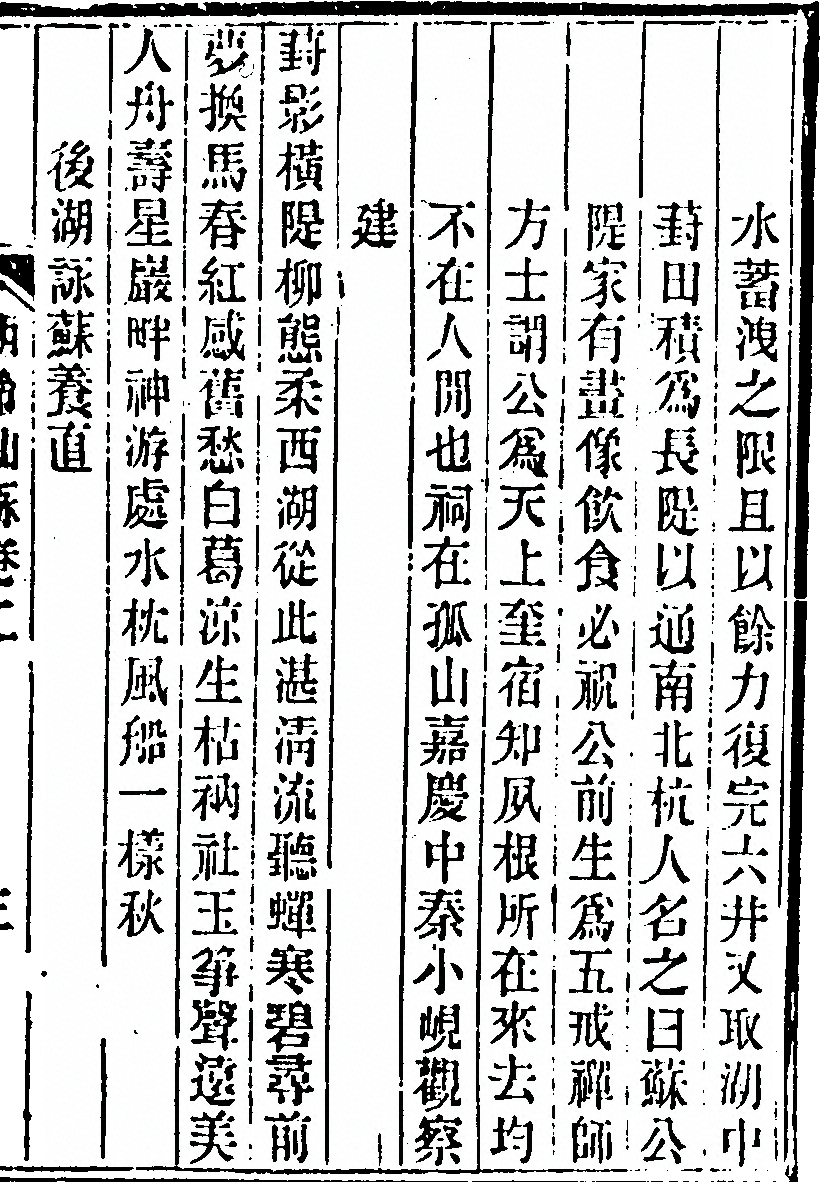 水蓄洩之限且以餘力復完六井又取湖中
葑田積爲長隄以通南北杭人名之曰蘇公
隄家有畫像飲食必祝公前生爲五戒禪師
方士謂公爲天上奎宿知夙根所在來去均
不在人間也祠在孤山嘉慶中秦小峴觀察
建
葑影橫隄柳態柔西湖從此湛淸流聽蟬寒碧尋前
夢換馬春紅感舊愁白葛涼生枯衲社玉筝聲遠美
人舟壽星巖畔神游處水枕風船一樣秋
後湖詠蘇養直
西泠仙詠卷二
三